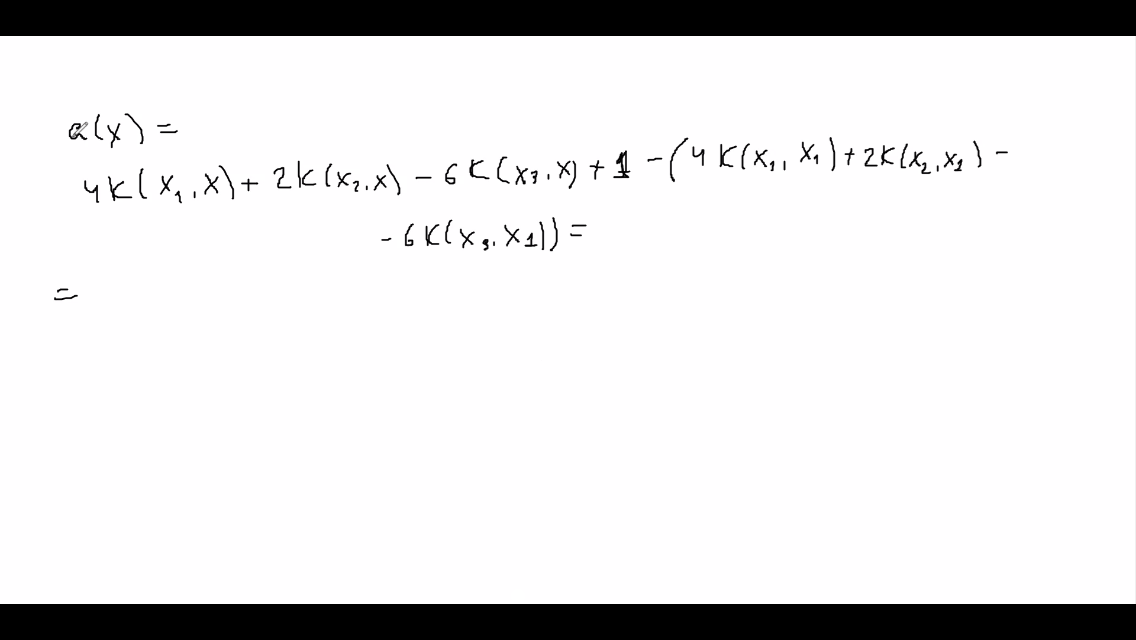 a(x) =
4K(x₁, x) + 2K(x₂, x) - 6K(x₃, x) + 1 - (4K(x₁, x₁) + 2K(x₂, x₁) -
- 6K(x₃, x₁)) =
=